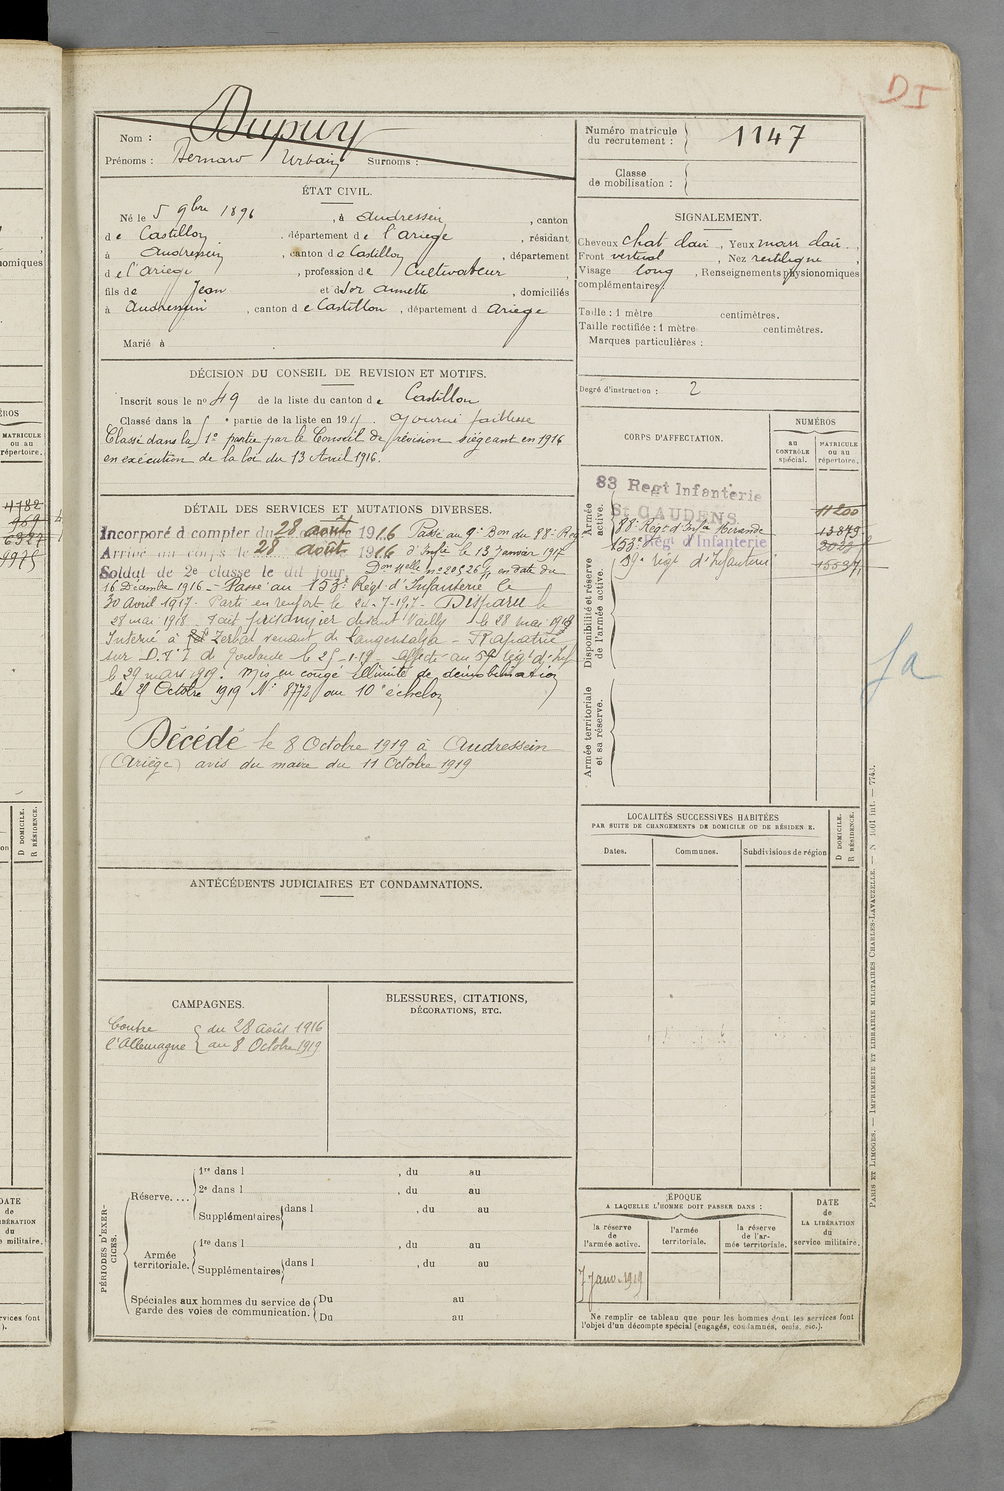 DI
Nom : Dupuy
Prénoms : Bernard Urbain Surnoms :
Numéro matricule du recrutement : 1147
Classe de mobilisation :
ÉTAT CIVIL.
Né le 5 9bre 1896, à Audressein, canton
de Castillon, département de l'Ariège, résidant
à Audressein, canton de Castillon, département
de l'Ariège, profession de Cultivateur,
fils de Jean et d Annette, domiciliés
à Audressein, canton de Castillon, département d Ariège
Marié à
SIGNALEMENT.
Cheveux chat clair, Yeux marr clair,
Front vertical, Nez rectiligne,
Visage long, Renseignements physionomiques
complémentaires :
Taille : 1 mètre centimètres.
Taille rectifiée : 1 mètre centimètres.
Marques particulières :
Degré d'instruction : 2
DÉCISION DU CONSEIL DE REVISION ET MOTIFS.
Inscrit sous le no 49 de la liste du canton de Castillon
Classé dans la 5e partie de la liste en 191 Ajourné faiblesse
Classé dans la 1e partie par le Conseil de révision siégeant en 1916
en exécution de la loi du 13 Avril 1916.
DÉTAIL DES SERVICES ET MUTATIONS DIVERSES.
Incorporé à compter du 28 août 1916 Passé au 9e Bon du 88e Reg
Arrivé au corps le 28 août 1916 d'Infie le 13 Janvier 1917
Soldat de 2e classe le dit jour. Don Melle no 20526 en date du
16 Décembre 1916 - Passé au 153e Régt d'Infanterie le
30 Avril 1917. Parti en renfort le 24-7-197. Disparu le
28 mai 1918. Fait prisonnier devant Vailly le 28 mai 1918
Interné à Zerbst venant de Langensalza - Rapatrié
sur D. de le 25-1-19 - affecté au 59 régt d'Inf
le 29 mars 1919. Mis en congé illimité de démobilisation
le 21 Octobre 1919 No 8772 au 10e échelon
Décédé le 8 Octobre 1919 à Audressein
(Ariège) avis du maire du 11 Octobre 1919
CORPS D'AFFECTATION.
NUMÉROS
au CONTRÔLE spécial.
MATRICULE ou au répertoire.
Armée active.
83 Regt Infanterie
St GAUDENS
11200
88e Régt d'Infie Mirande
13879
153e Régt d'Infanterie
59e régt d'Infanterie
15597
Disponibilité et réserve de l'armée active.
Armée territoriale et sa réserve.
LOCALITÉS SUCCESSIVES HABITÉES
PAR SUITE DE CHANGEMENTS DE DOMICILE OU DE RÉSIDEN E.
Dates.
Communes.
Subdivisions de région
D DOMICILE.
R RÉSIDENCE.
ANTÉCÉDENTS JUDICIAIRES ET CONDAMNATIONS.
CAMPAGNES.
Contre l'Allemagne
du 28 août 1916
au 8 Octobre 1919
BLESSURES, CITATIONS,
DÉCORATIONS, ETC.
PÉRIODES D'EXERCICES.
Réserve....
1re dans l , du au
2e dans l , du au
Supplémentaires dans l , du au
Armée territoriale.
1re dans l , du au
Supplémentaires dans l , du au
Spéciales aux hommes du service de
garde des voies de communication.
Du au
Du au
ÉPOQUE
A LAQUELLE L'HOMME DOIT PASSER DANS :
la réserve de l'armée active.
l'armée territoriale.
la réserve de l'armée territoriale.
DATE de LA LIBÉRATION du service militaire.
7 janv. 1919
Ne remplir ce tableau que pour les hommes dont les services font
l'objet d'un décompte spécial (engagés, condamnés, omis, etc.).
PARIS ET LIMOGES. — IMPRIMERIE ET LIBRAIRIE MILITAIRES CHARLES-LAVAUZELLE.
MATRICULE
ou au
répertoire.
4182
969
6327
9975
D DOMICILE.
R RÉSIDENCE.